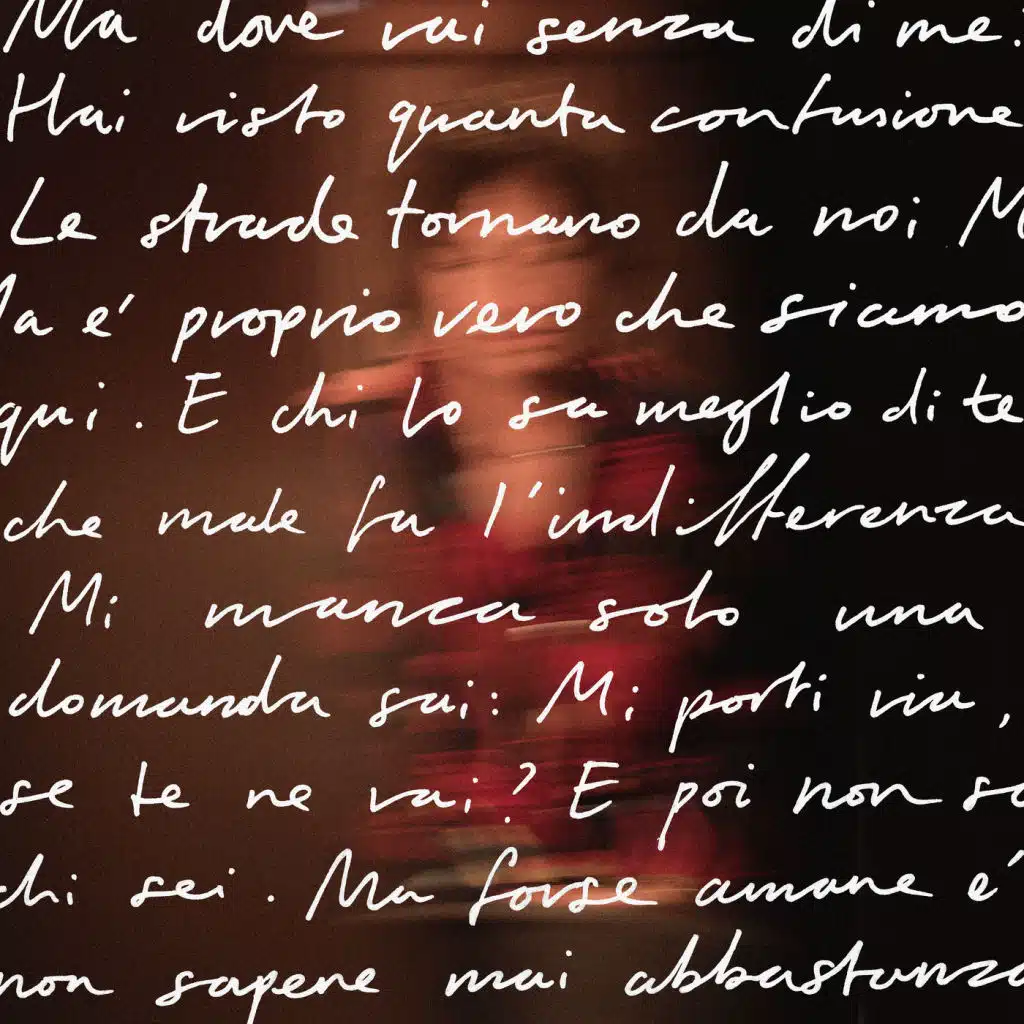 Ma dove vai senza di me?
Hai visto quanta confusione
Le strade tornano da noi M
Ma é proprio vero che siamo
qui. E chi lo sa meglio di te
che male fa l'indifferenza
Mi manca solo una
domanda sai: Mi porti via,
se te ne vai? E poi non so
chi sei. Ma forse amare é
non sapere mai abbastanza